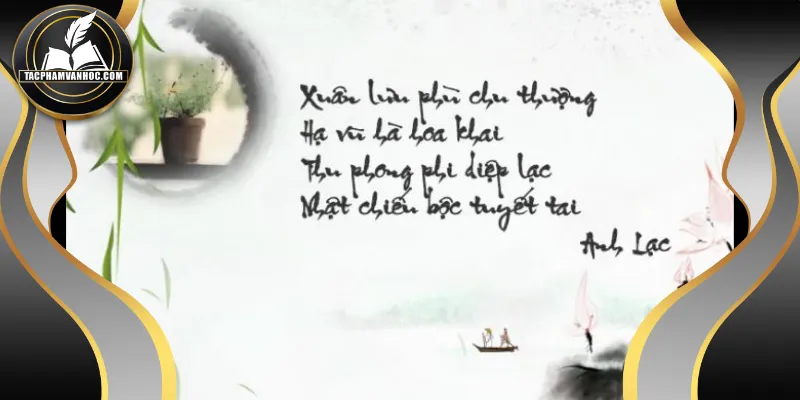 TACPHAMVANHOC.COM
Xuân lưu phù chu thượng
Hạ vũ hà hoa khai
Thu phong phi diệp lạc
Nhật chiếu bộc tuyết tai
Anh Lạc